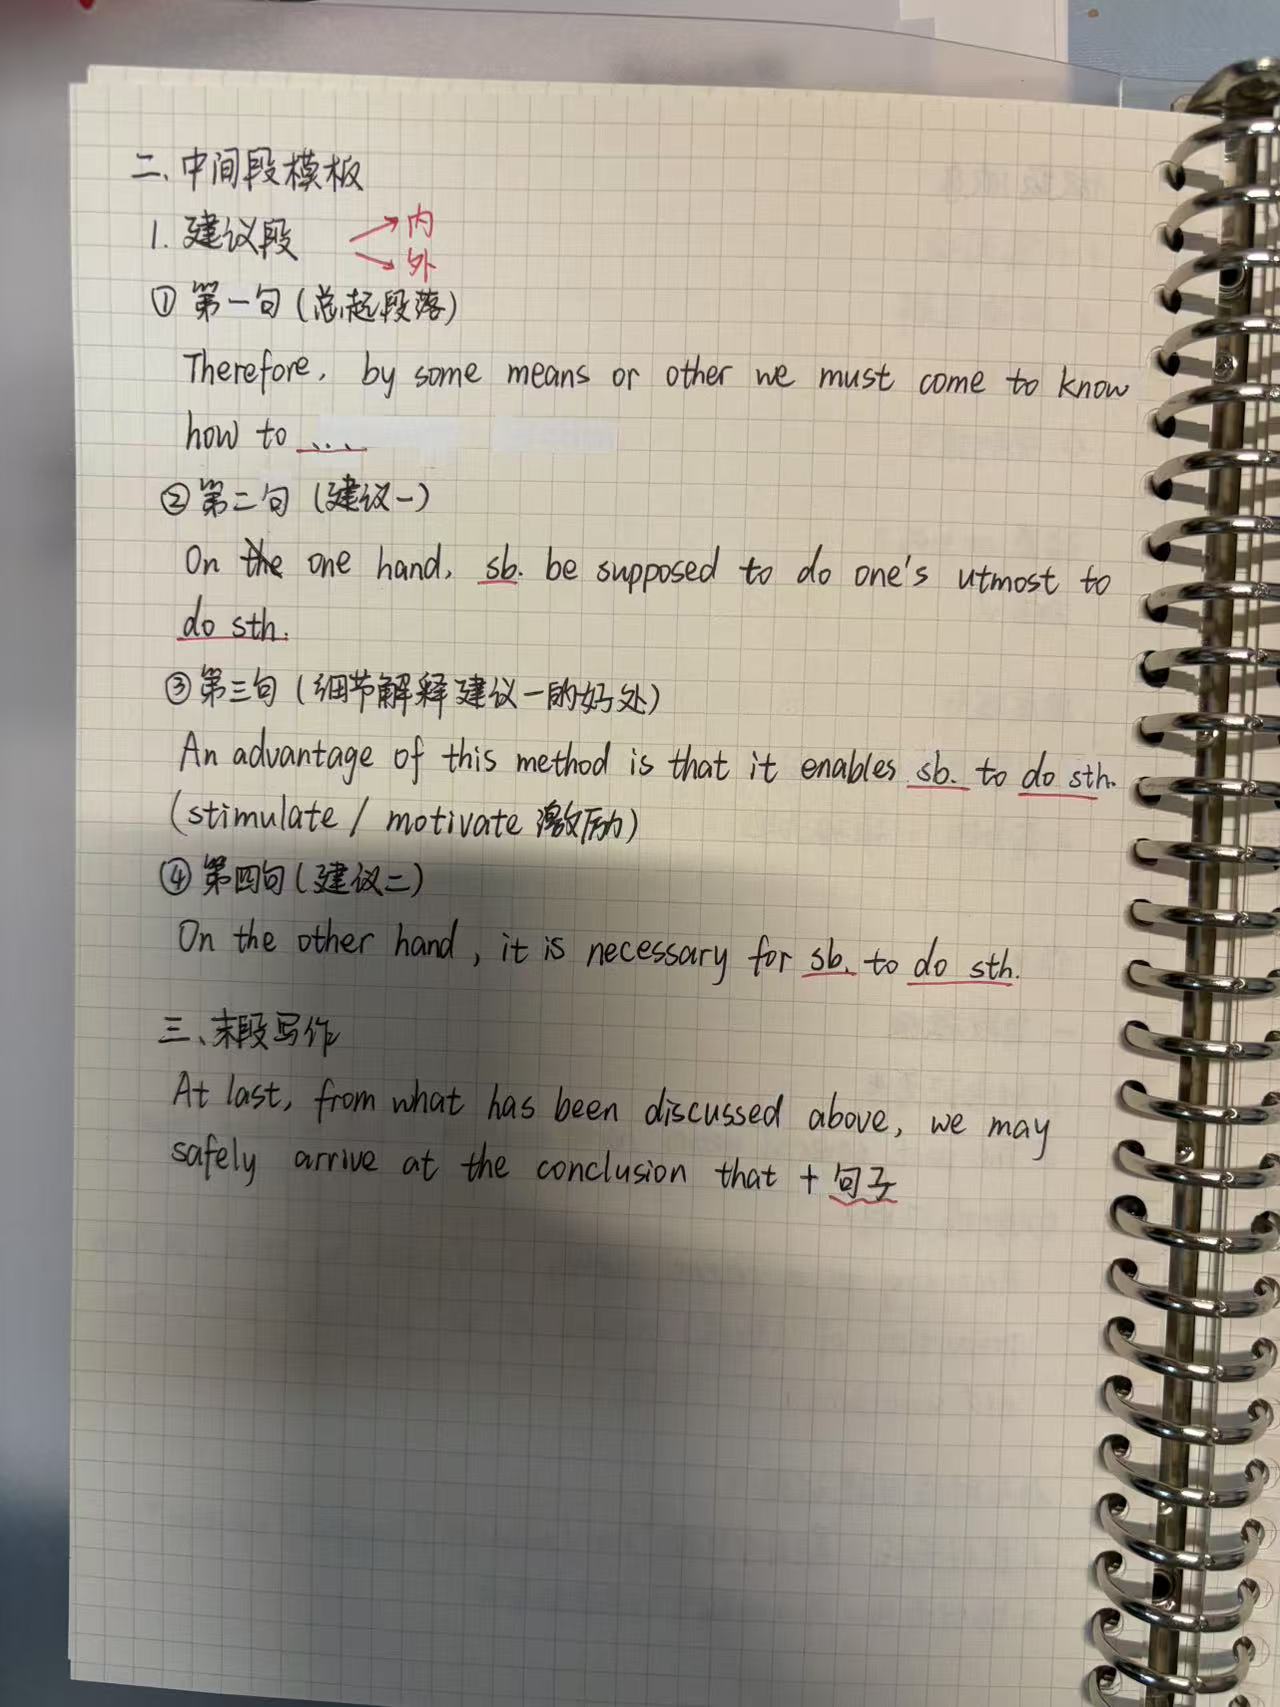 二、中间段模板
1. 建议段 →内
→外
① 第一句(总起段落)
Therefore, by some means or other we must come to know
how to ...
② 第二句 (建议一)
On the one hand, sb. be supposed to do one's utmost to
do sth.
③ 第三句 (细节解释建议一的好处)
An advantage of this method is that it enables sb. to do sth.
(stimulate / motivate 激励)
④ 第四句 (建议二)
On the other hand, it is necessary for sb. to do sth.
三、末段写作
At last, from what has been discussed above, we may
safely arrive at the conclusion that + 句子